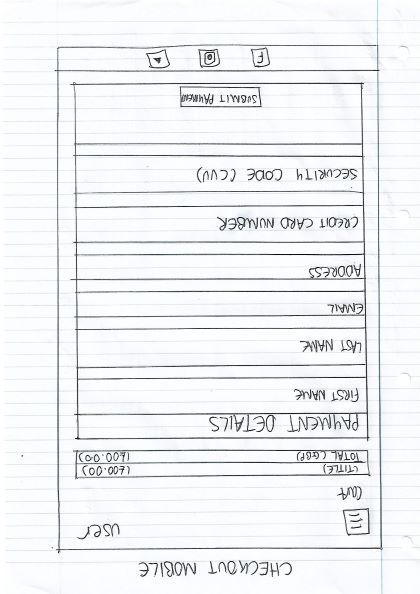 CHECKOUT MOBILE
user
Cart
(TITLE) (£00.00)
TOTAL (GBP) (£00.00)
PAYMENT DETAILS
FIRST NAME
LAST NAME
EMAIL
ADDRESS
CREDIT CARD NUMBER
SECURITY CODE (CVV)
SUBMIT PAYMENT
F